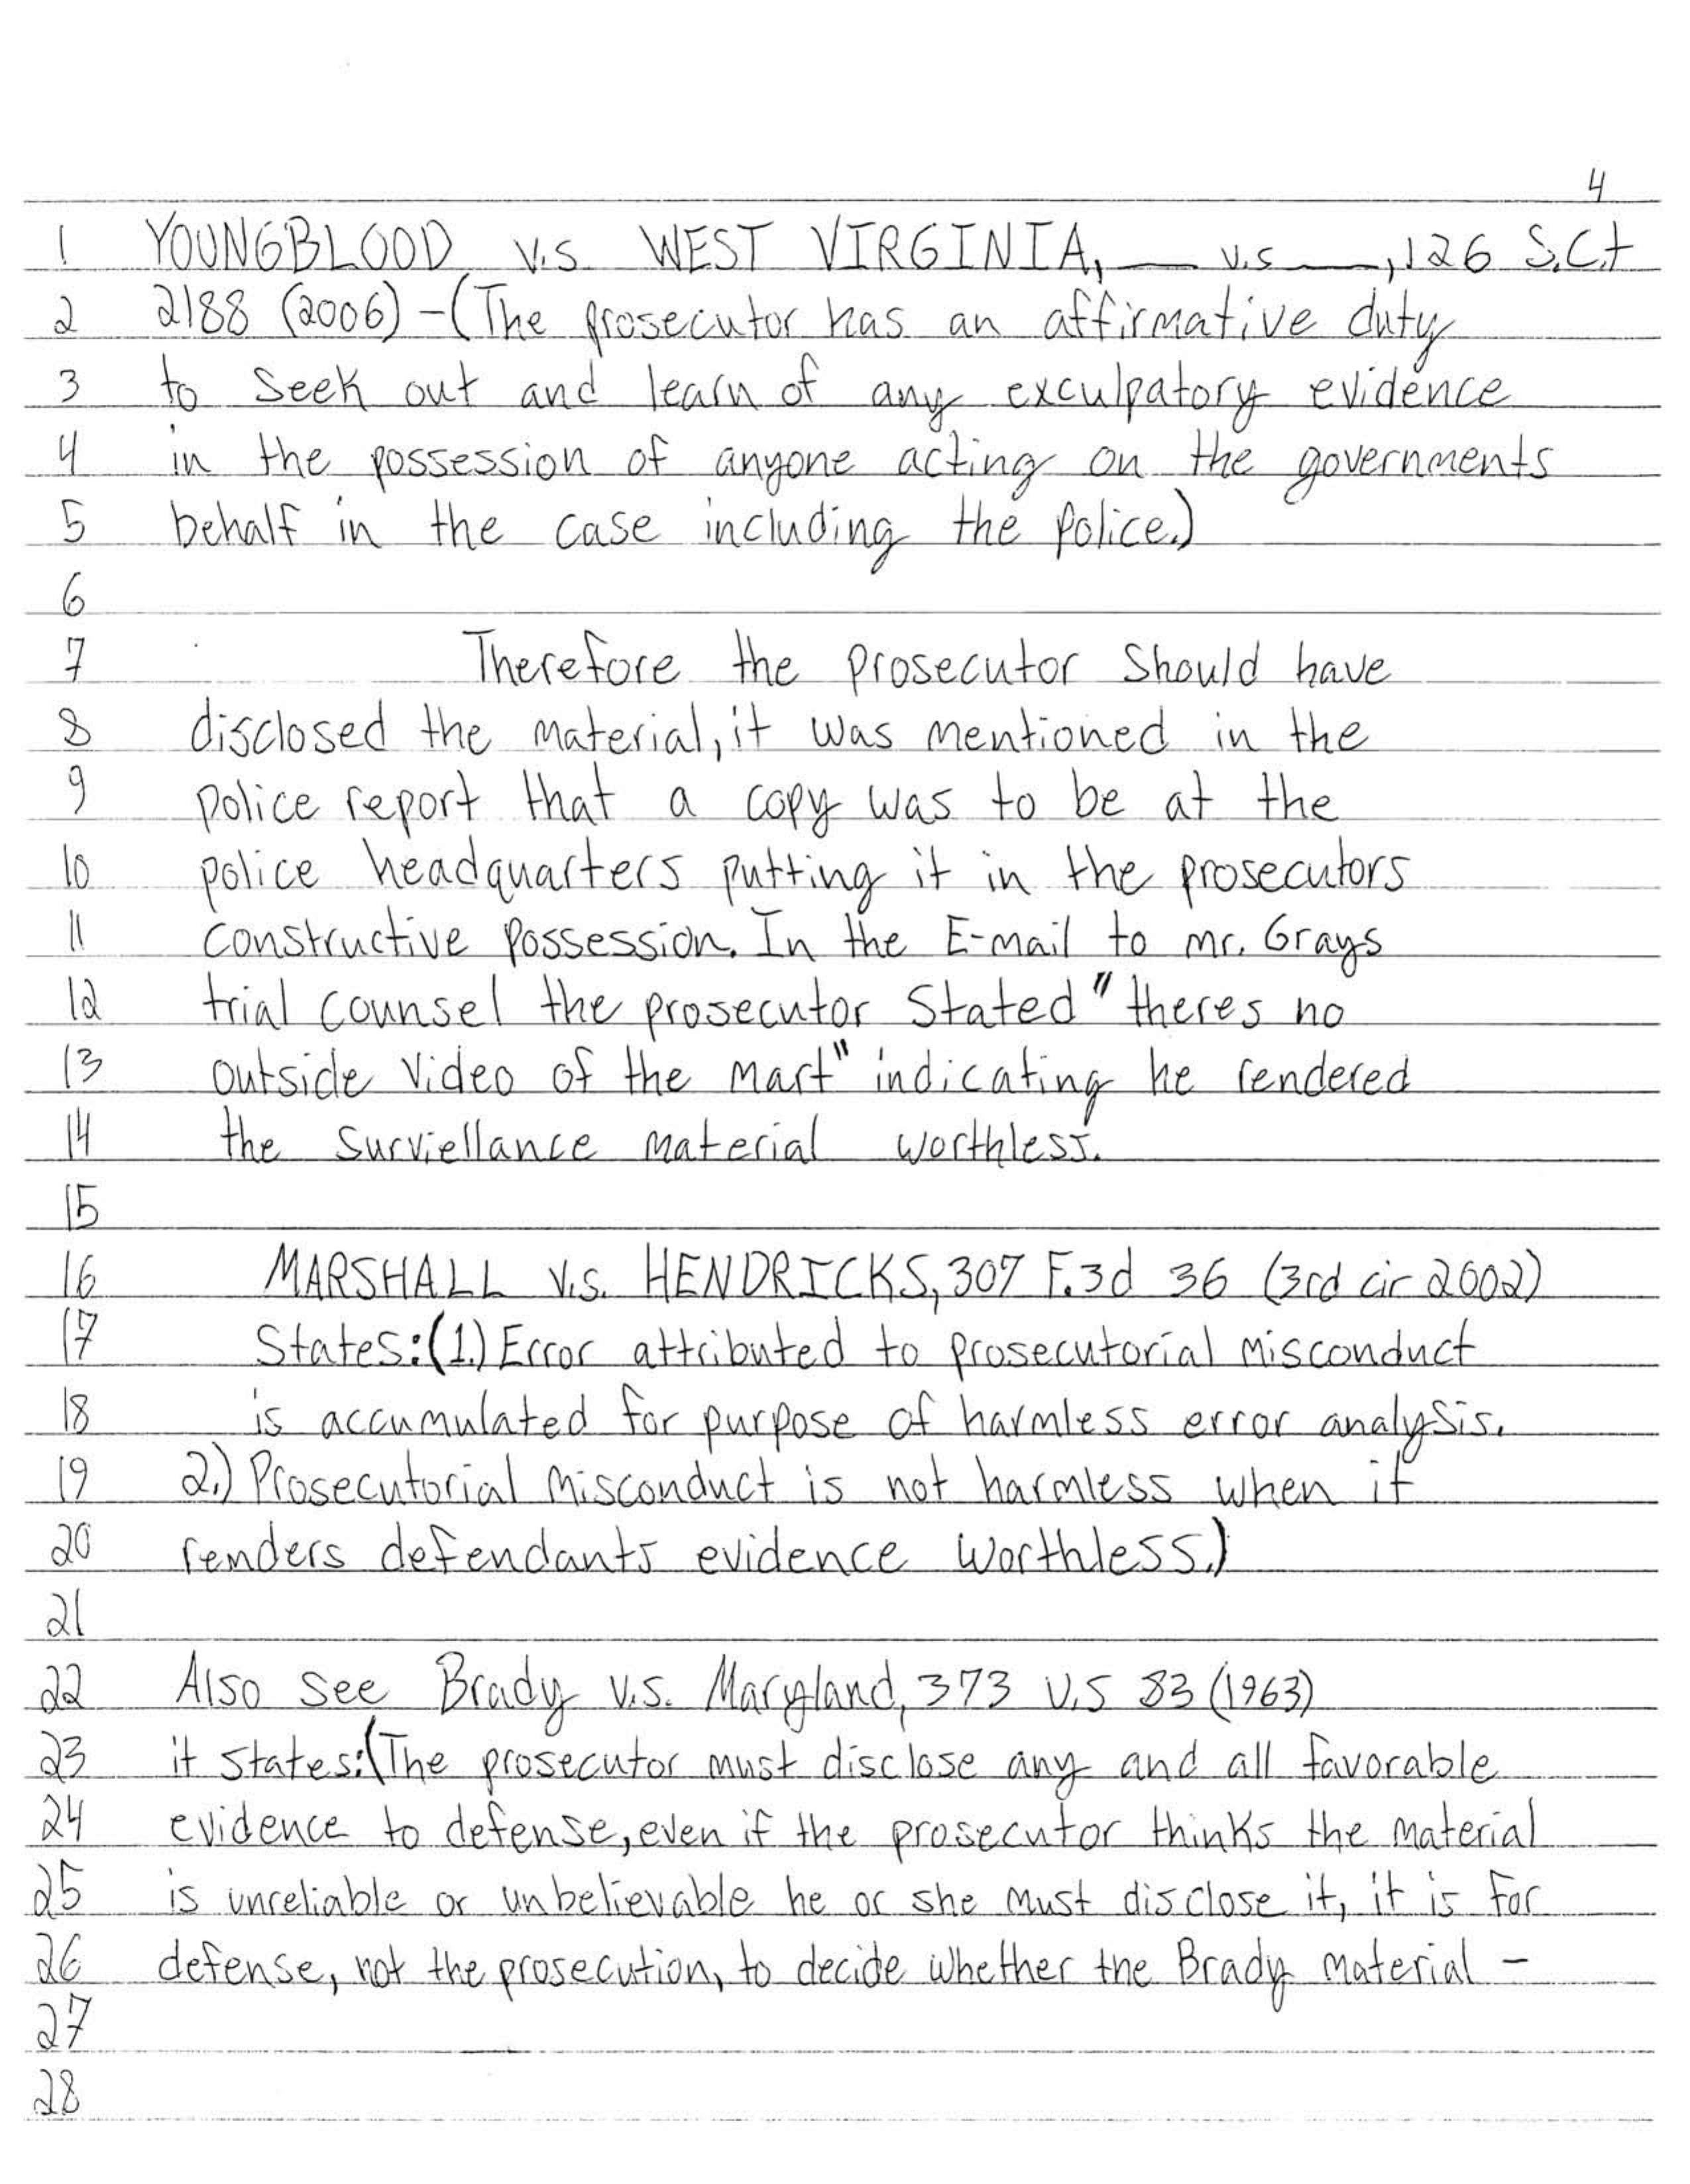 4
1 YOUNGBLOOD V.S. WEST VIRGINIA, __ v.s __, 126 S.Ct
2 2188 (2006) - (The prosecutor has an affirmative duty
3 to Seek out and learn of any exculpatory evidence
4 in the possession of anyone acting on the governments
5 behalf in the case including the police.)
6
7 Therefore the prosecutor Should have
8 disclosed the material, it was mentioned in the
9 police report that a copy was to be at the
10 police headquarters putting it in the prosecutors
11 constructive possession. In the E-mail to mr. Grays
12 trial counsel the prosecutor Stated "theres no
13 outside video of the mart" indicating he rendered
14 the Surviellance material worthless.
15
16 MARSHALL V.S. HENDRICKS, 307 F.3d 36 (3rd cir 2002)
17 States: (1.) Error attributed to prosecutorial misconduct
18 is accumulated for purpose of harmless error analysis.
19 2.) Prosecutorial misconduct is not harmless when it
20 renders defendants evidence worthless.)
21
22 Also see Brady V.S. Maryland, 373 U.S 83 (1963)
23 it states: (The prosecutor must disclose any and all favorable
24 evidence to defense, even if the prosecutor thinks the material
25 is unreliable or unbelievable he or she must disclose it, it is for
26 defense, not the prosecution, to decide whether the Brady material -
27
28